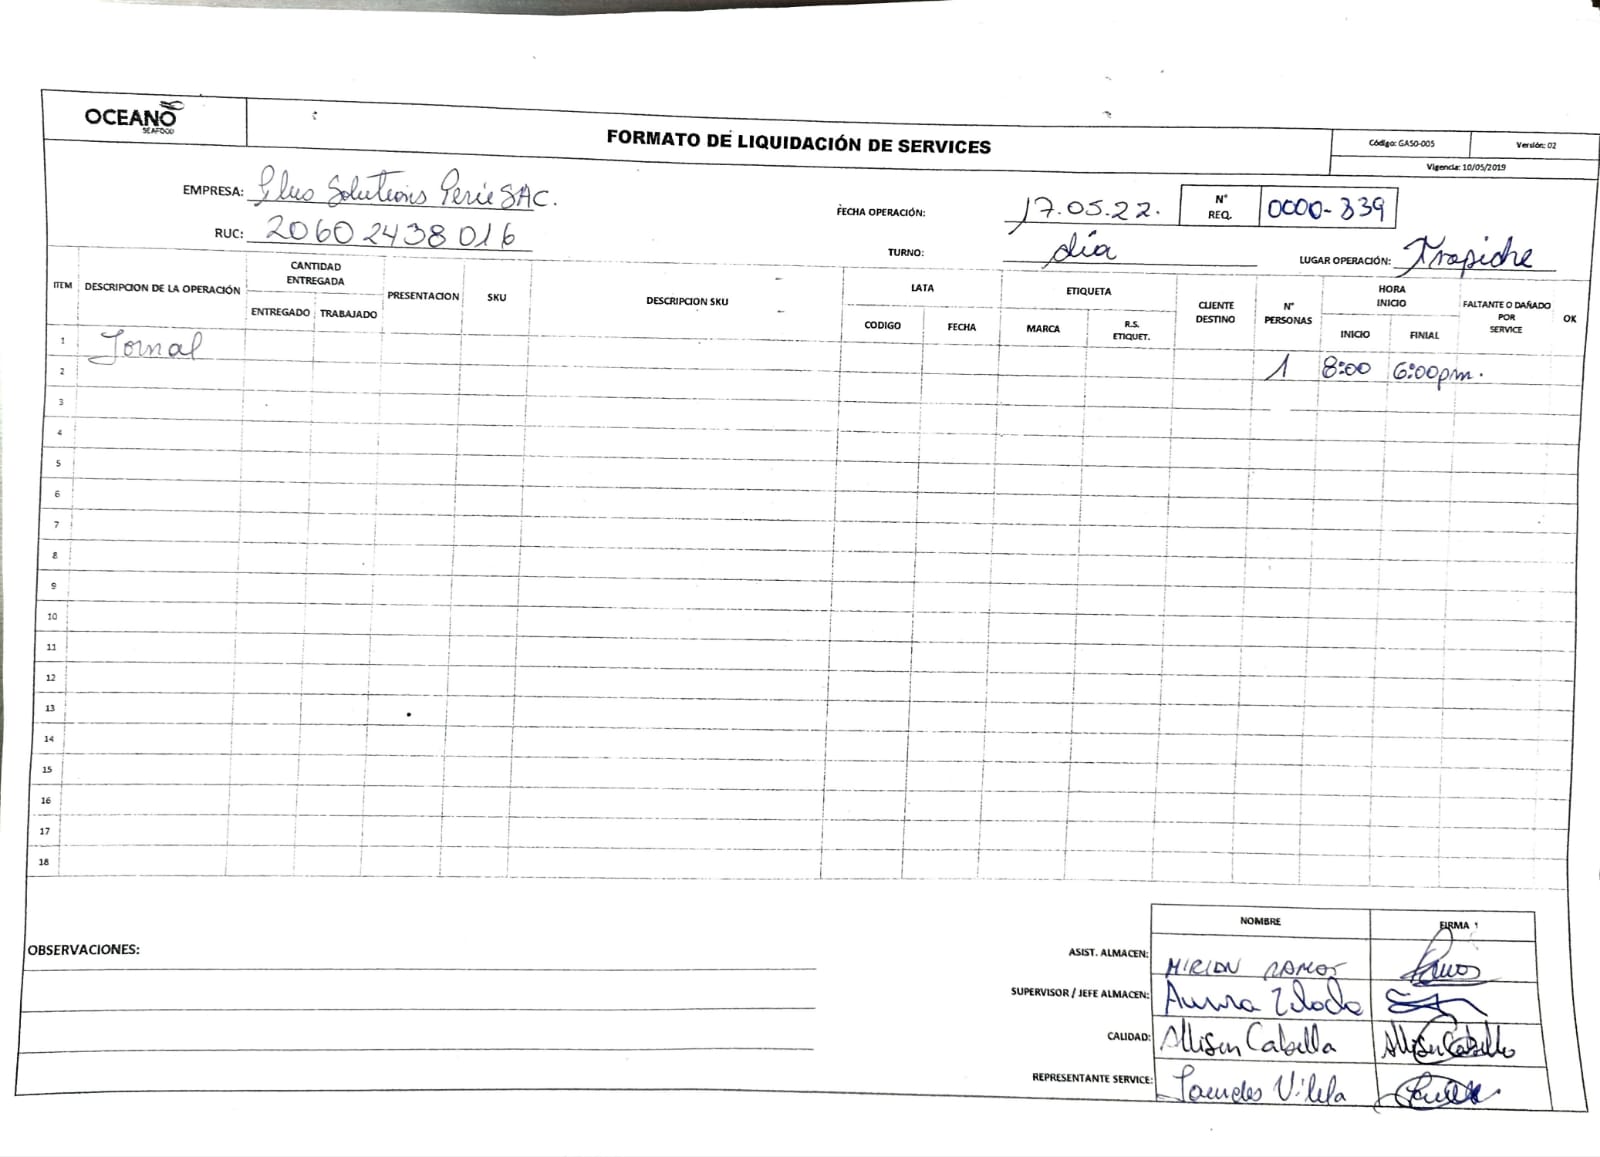 OCEANO
SEAFOOD
FORMATO DE LIQUIDACIÓN DE SERVICES
Código: GASO-005
Versión: 02
Vigencia: 10/05/2019
EMPRESA: Plus Solutions Perú SAC.
FECHA OPERACIÓN: 17.05.22.
N° REQ. 0000-339
RUC: 20602438016
TURNO: día
LUGAR OPERACIÓN: Trapiche
ITEM DESCRIPCION DE LA OPERACIÓN CANTIDAD ENTREGADA PRESENTACION SKU DESCRIPCION SKU LATA ETIQUETA CLIENTE DESTINO N° PERSONAS HORA INICIO FALTANTE O DAÑADO POR SERVICE OK
ENTREGADO TRABAJADO CODIGO FECHA MARCA R.S. ETIQUET. INICIO FINIAL
1 Jornal 1 8:00 6:00pm.
2
3
4
5
6
7
8
9
10
11
12
13
14
15
16
17
18
OBSERVACIONES:
NOMBRE FIRMA
ASIST. ALMACEN: MIRIAN RAMOS Ramos
SUPERVISOR / JEFE ALMACEN:
CALIDAD: Allison Cabella Allison Cabello
REPRESENTANTE SERVICE: Lourdes Vilela